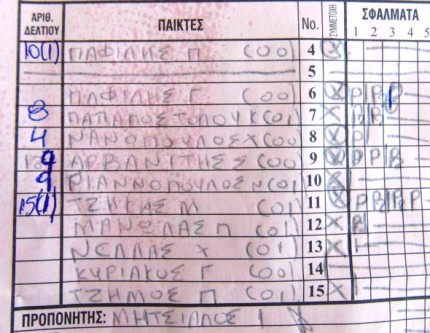 ΑΡΙΘ. ΔΕΛΤΙΟΥ ΠΑΙΚΤΕΣ No. ΣΥΜΜΕΤΟΧΗ ΣΦΑΛΜΑΤΑ
1 2 3 4 5
10(1) ΠΑΦΙΛΗΣ Π (00) 4 X
5
ΠΑΦΙΛΗΣ Γ (00) 6 X P P P
8 ΠΑΠΑΠΟΣΤΟΛΟΥ Κ (01) 7 X
4 ΝΑΝΟΠΟΥΛΟΣ Χ (00) 8 X P
9 ΑΡΒΑΝΙΤΗΣ Σ (00) 9 X P P P
9 ΓΙΑΝΝΟΠΟΥΛΟΣ Ν (01) 10 X
15(1) ΤΖΗΚΗΣ Μ (01) 11 X P P P P
ΜΑΝΩΛΑΣ Π (01) 12 X P
ΝΕΛΛΑΣ Χ (01) 13 X
ΚΥΡΙΑΚΟΣ Γ (00) 14
ΤΖΗΜΟΣ Π (01) 15 X
ΠΡΟΠΟΝΗΤΗΣ: ΜΗΤΣΙΑΛΟΣ Ι